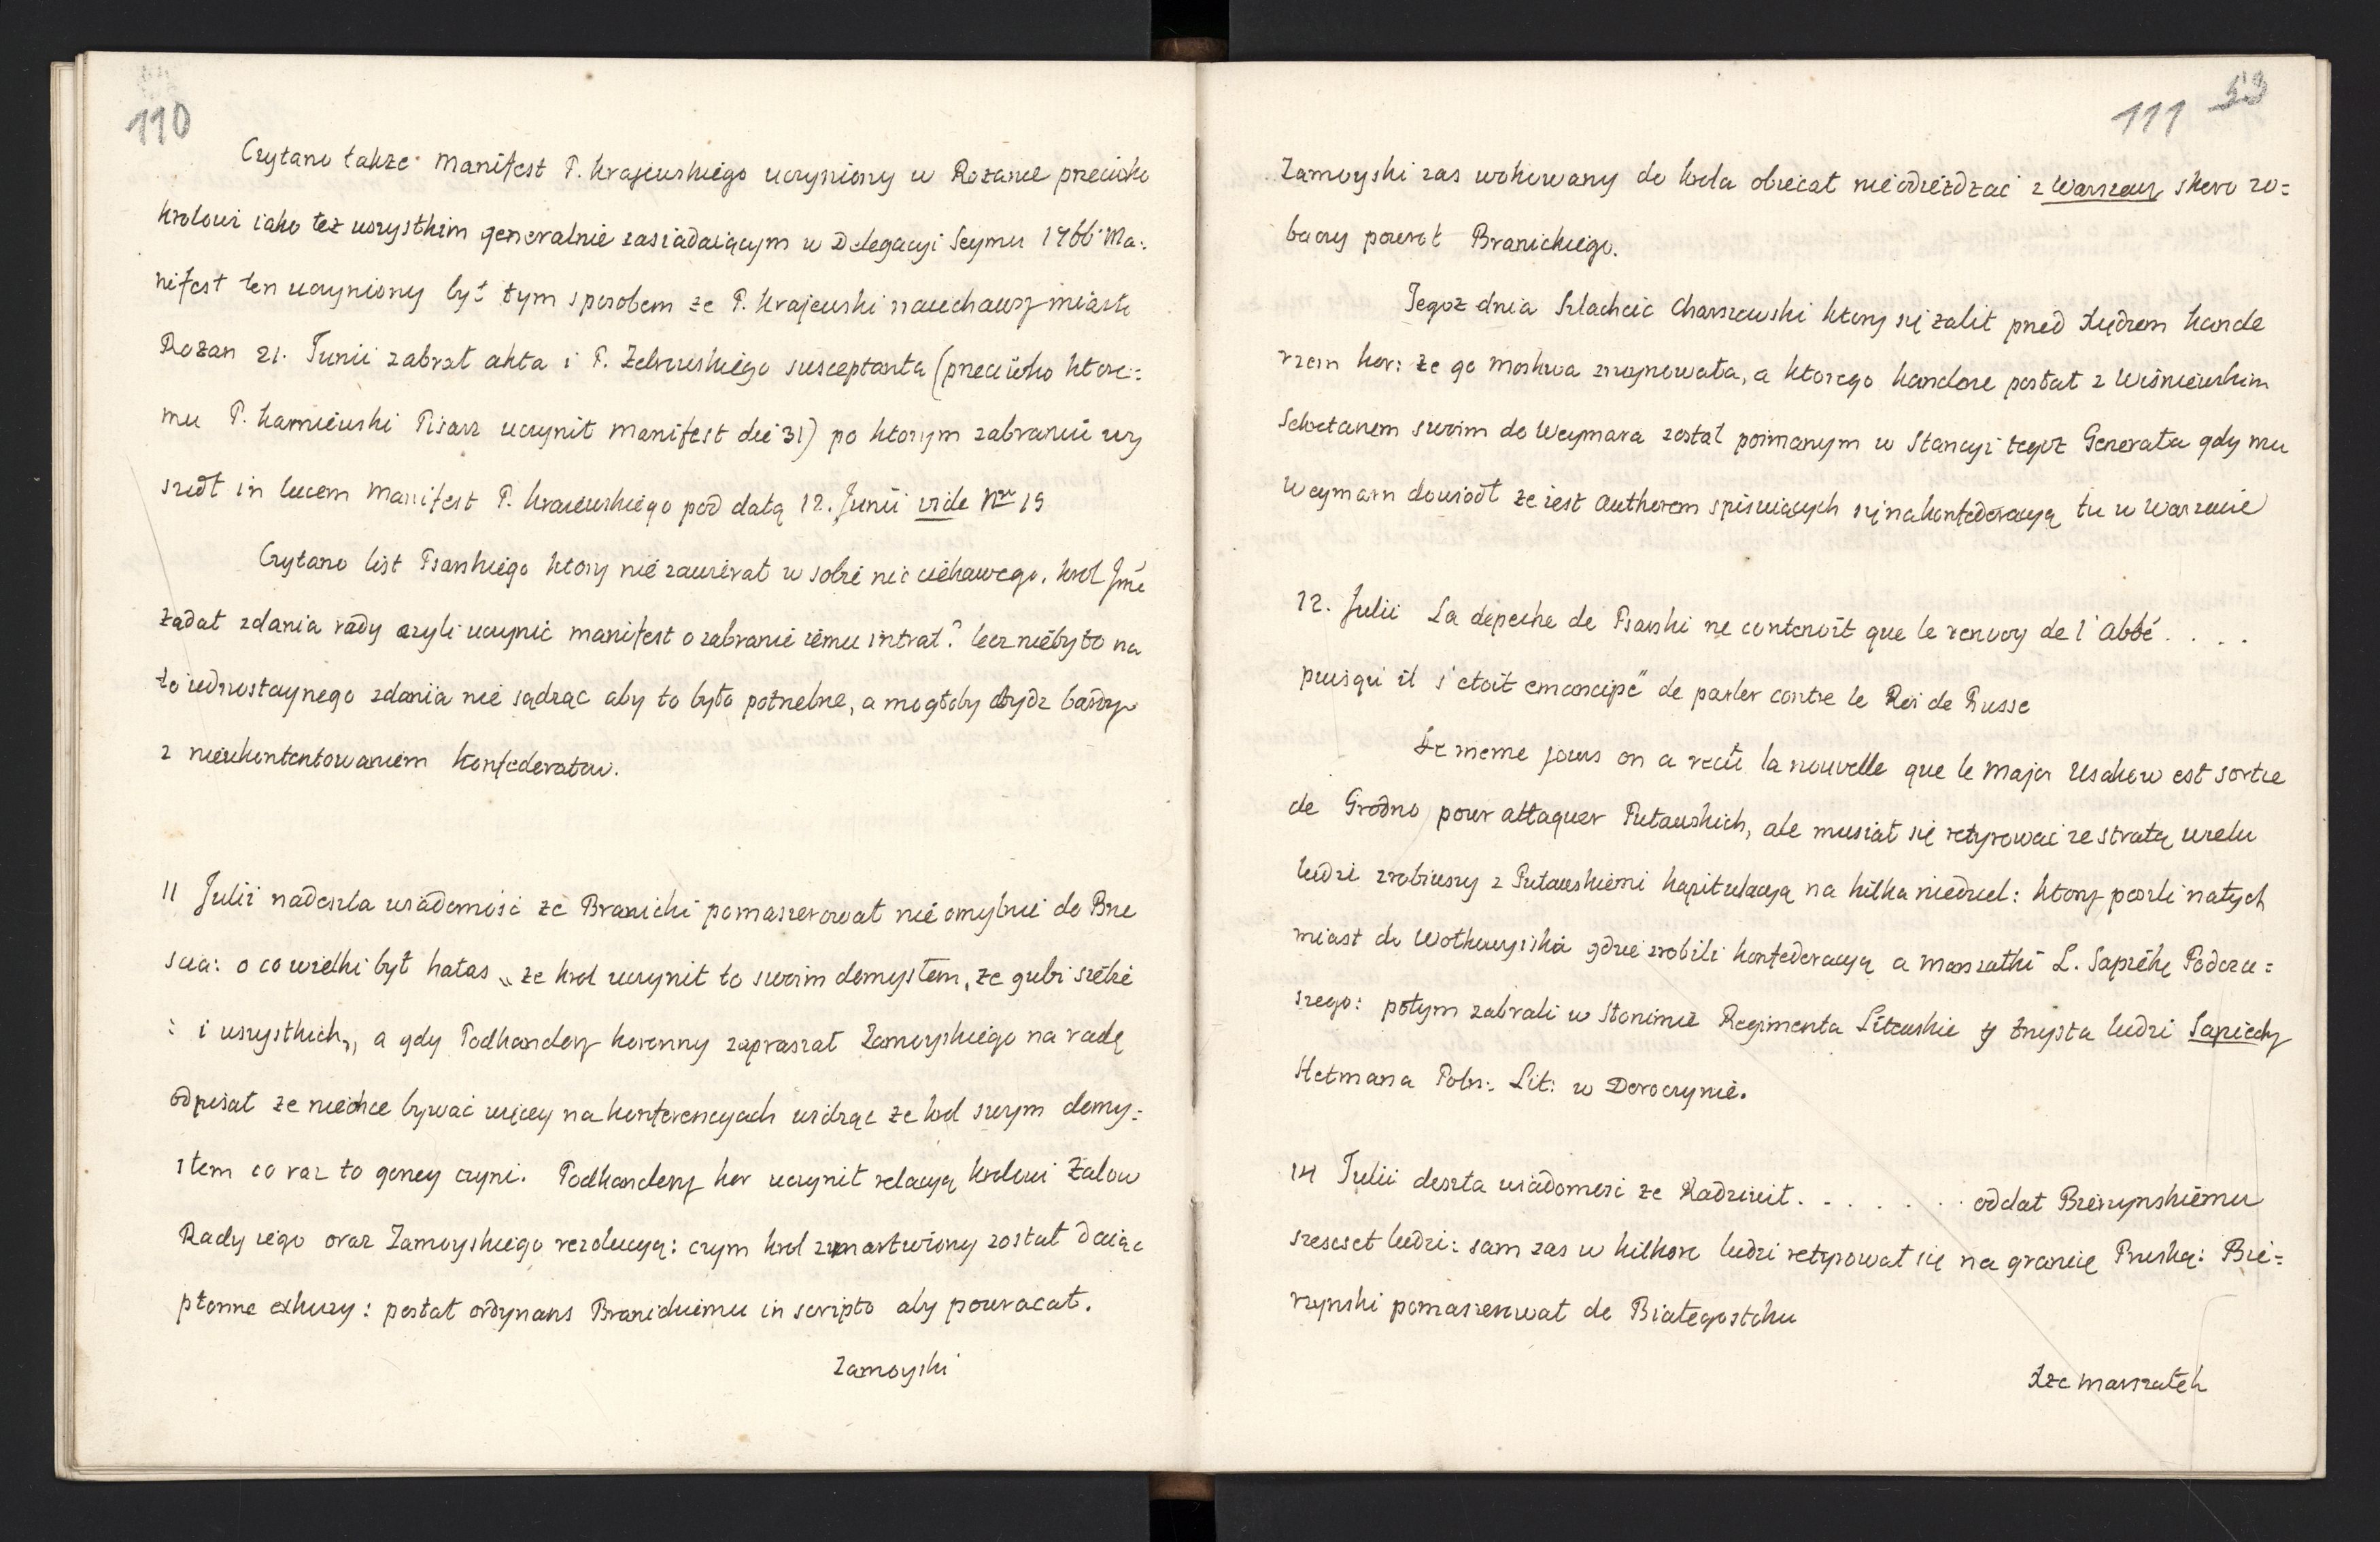 110
Czytano także Manifest P. Krajewskiego uczyniony w Rozanie przeciwko
krolowi iako też wszystkim generalnie zasiadaiącym w Delegacyi Seymu 1766 Ma:
nifest ten uczyniony był tym sposobem ze P. Krajewski naiechawszy miasto
Rozan 21. Junii zabrał akta i P. Zebrowskiego susceptanta (przeciwko ktore:
mu P. Karniewski Pisarz uczynił manifest die 31) po ktorym zabraniu wy
szedł in lucem Manifest P. Kraiewskiego pod datą 12. Junii vide Nro 19
Czytano list Psarskiego ktory nie zawierał w sobie nic ciekawego. Krol Jmć
żądał zdania rady czyli uczynić manifest o zabranie iemu intrat? lecz niebyło na
to iednostaynego zdania nie sądząc aby to było potrzebne, a mogłoby bydz bardzy
z nieukontentowaniem Konfederatow.
11 Julii nadeszła wiadomość ze Branicki pomaszerował nie omylnie do Brze
scia: o co wielki był hałas „ze krol uczynił to swoim domysłem, ze gubi siebie
: i wszystkich„ a gdy Podkanclerzy koronny zapraszał Zamoyskiego na radę
odpisał ze niechce bywać więcey na konferencyach widząc ze krol swym domy:
słem co raz to gorzey czyni. Podkanclerzy kor uczynił relacyą krolowi Żalow
Rady iego oraz Zamoyskiego rezolucyą: czym krol zmartwiony został daiąc
płonne exkuzy: posłał ordynans Branickiemu in scripto aby powracał.
Zamoyski
111 53
Zamoyski zas wokowany do krola obiecał nieodieżdzać z Warszawy skoro zo:
baczy powrot Branickiego.
Tegoz dnia Szlachcic Charszewski ktory się żalił przed Xiędzem Kancle
rzem kor: że go Moskwa zruynowała, a ktorego kanclerz posłał z Wiśniewskim
Sekretarzem swoim do Weymara został poimanym w Stancyi tegoż Generała gdy mu
Weymarn dowiodł ze iest Authorem spisuiących się na konfederacyą tu w Warszawie
12. Julii La depeche de Psarski ne contenoit que le renvoy de l'Abbé . . . .
puisqu'il s'etoit emancipé" de parler contre le Roi de Prusse
Le meme jours on a reciû la nouvelle que le Major Usakow est sortie
de Grodno pour attaquer Puławskich, ale musiał się retyrować ze stratą wielu
ludzi zrobiwszy z Pułaskiemi kapitulacyą na kilka niedziel: ktorzy poszli natych
miast do Wołkowyiska gdzie zrobili konfederacyą a Marszałki L. Sapiehę Podcza:
szego: potym zabrali w Słonimie Regimenta Litewskie y trzysta ludzi Sapiechy
Hetmana Poln: Lit: w Doroczynie.
14 Julii doszła wiadomość ze Radziwił . . . . . . . oddał Bierzynskiemu
szescset ludzi: sam zas w kilkoro ludzi retyrował się na granicę Pruską: Bie:
rzynski pomaszerował do Białegostoku
Xże Marszałek